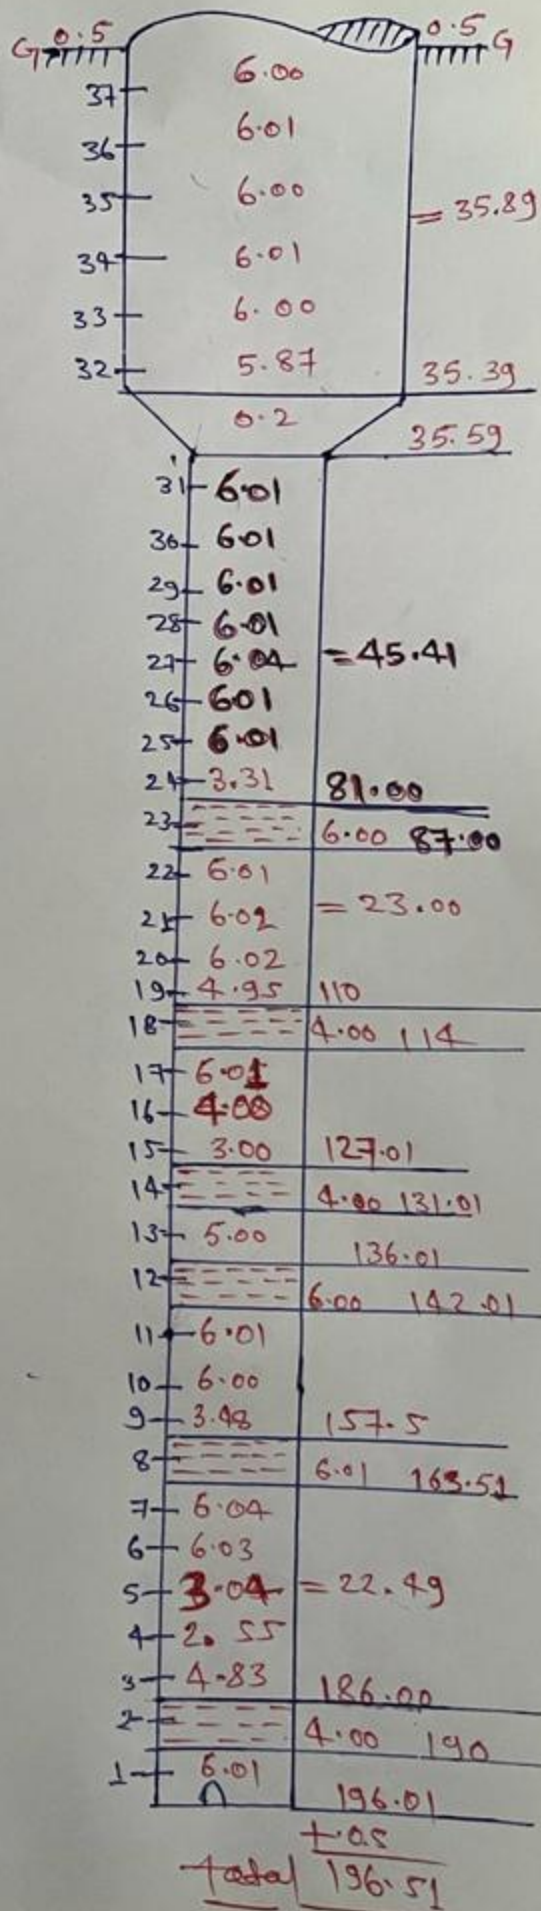 G 0.5 0.5 G
6.00
37
6.01
36
6.00
35 = 35.89
6.01
34
6.00
33
5.87
32 35.39
0.2 35.59
31 6.01
30 6.01
29 6.01
28 6.01
27 6.04 = 45.41
26 6.01
25 6.01
24 3.31 81.00
23 6.00 87.00
22 6.01
21 6.02 = 23.00
20 6.02
19 4.95 110
18 4.00 114
17 6.01
16 4.00
15 3.00 127.01
14 4.00 131.01
13 5.00 136.01
12 6.00 142.01
11 6.01
10 6.00
9 3.48 157.5
8 6.01 163.51
7 6.04
6 6.03
5 3.04 = 22.49
4 2.55
3 4.83 186.00
2 4.00 190
1 6.01 196.01
+0.5
total 196.51